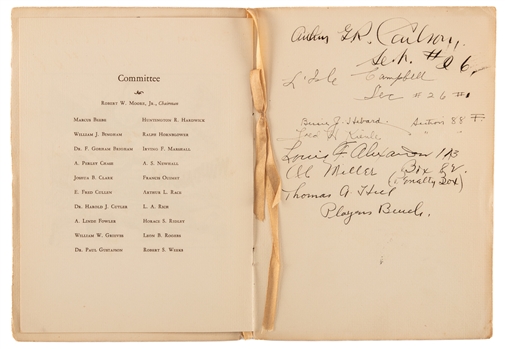 Committee
Robert W. Moore, Jr., Chairman
Marcus Beebe
William J. Bingham
Dr. F. Gorham Brigham
A. Parley Chase
Joshua B. Clark
E. Fred Cullen
Dr. Harold J. Cutler
A. Linde Fowler
William W. Groves
Dr. Paul Gustafson
Huntington R. Hardwick
Ralph Hornblower
Irving F. Marshall
A. S. Newhall
Francis Ouimet
Arthur L. Race
L. A. Rich
Horace S. Ridley
Leon B. Rogers
Robert S. Weeks
G. R. Carlson,
Campbell
Sec # 26 #1
Hobard Section 88 F.
" "
Louis F. Alexander 113
Al Miller Box 82
(Penalty Box)
Thomas A Hill
Players Bench.